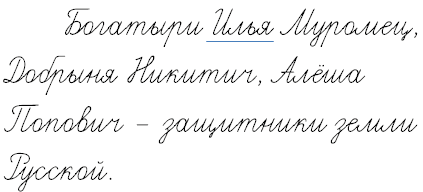 Богатыри Илья Муромец,
Добрыня Никитич, Алёша
Попович – защитники земли
Русской.